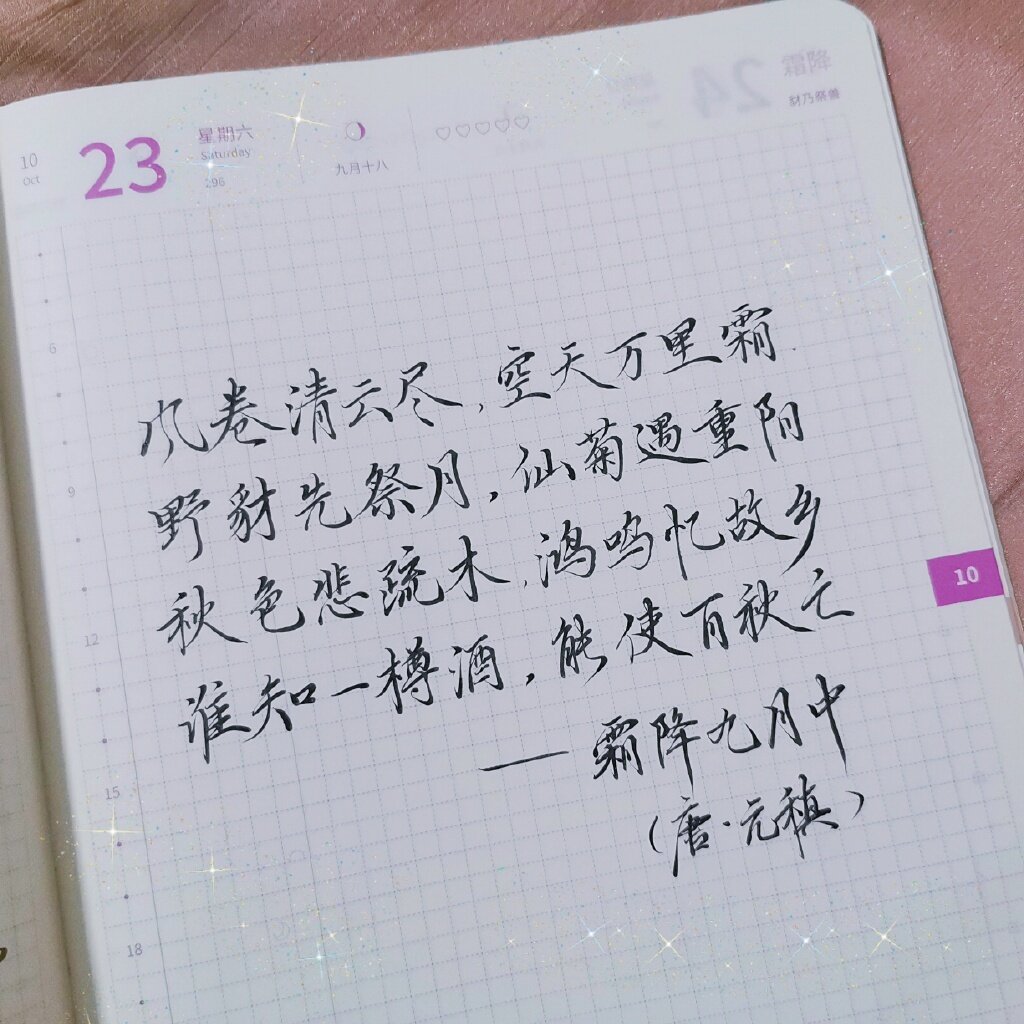 10
Oct
23
星期六
Saturday
296
九月十八
24
霜降
豺乃祭兽
风卷清云尽,空天万里霜.
野豺先祭月,仙菊遇重阳
秋色悲疏木,鸿鸣忆故乡
谁知一樽酒,能使百秋亡
— 霜降九月中
(唐·元稹)
6
9
12
15
18
10